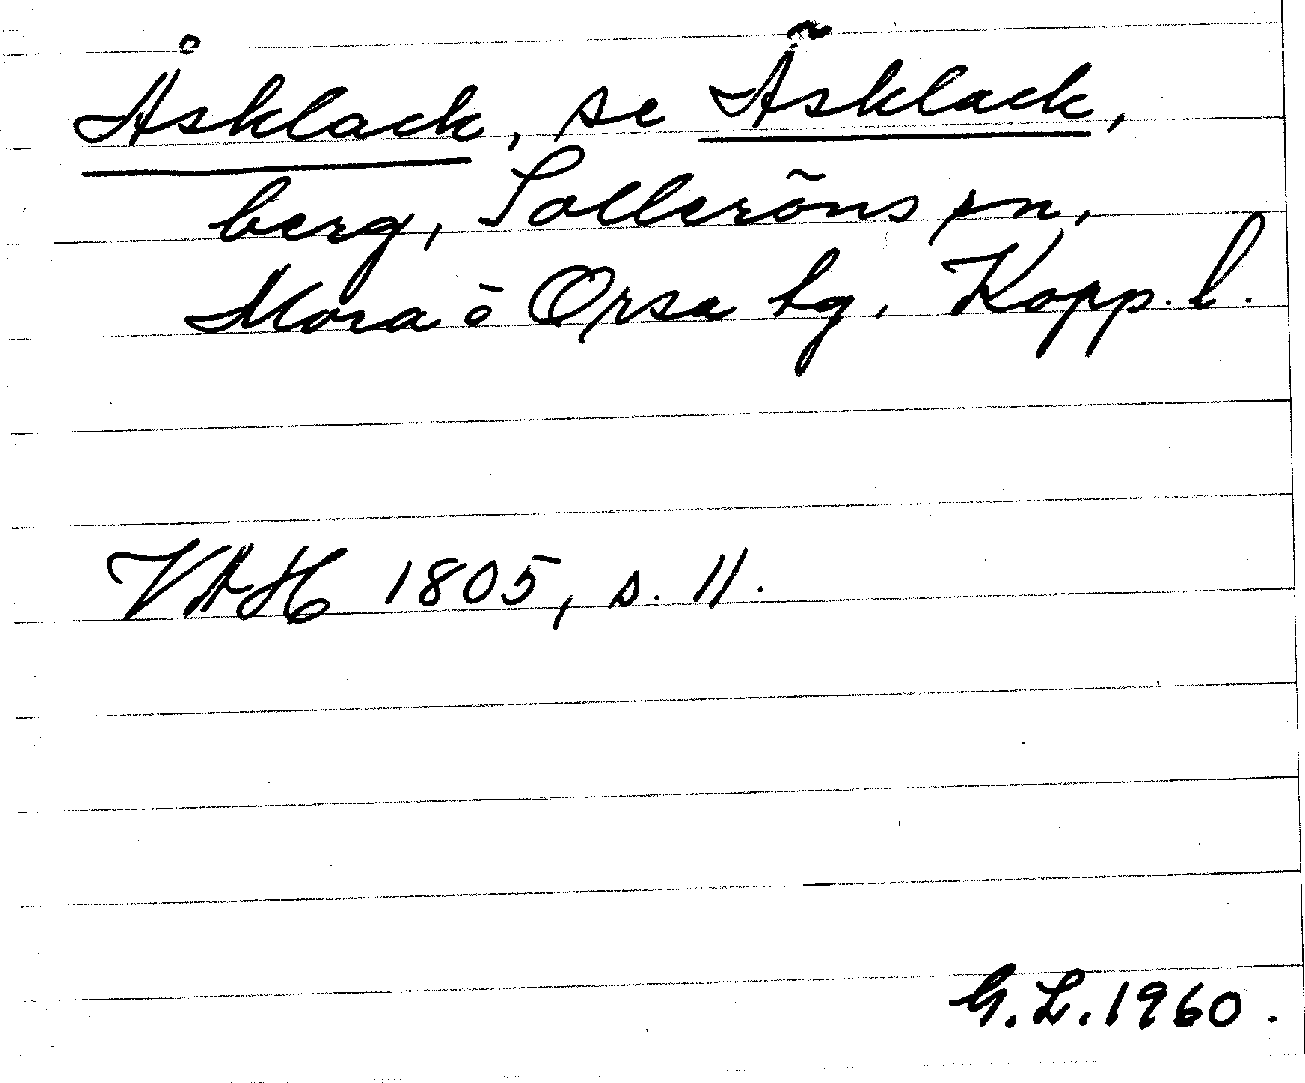 Åsklack, se Äsklack,
berg, Solleröns sn,
Mora o Orsa tg, Kopp. l.
VAH 1805, s. 11.
G. L. 1960.